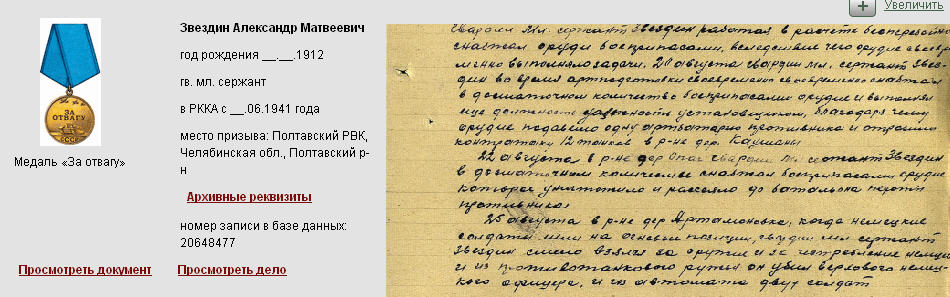 Увеличить
ЗА
ОТВАГУ
СССР
Медаль «За отвагу»
Звездин Александр Матвеевич
год рождения __.__.1912
гв. мл. сержант
в РККА с __.06.1941 года
место призыва: Полтавский РВК,
Челябинская обл., Полтавский р-
н
Архивные реквизиты
номер записи в базе данных:
20648477
Просмотреть документ
Просмотреть дело
гвардии мл. сержант Звездин работая в расчете бесперебойно
снабжал орудие боеприпасами, вследствие чего орудие своевре
менно выполняло задачи. 20 августа гвардии мл. сержант Звез-
дин во время артподготовки своевременно снабжал
в достаточном количестве боеприпасами орудие и выполня
еще должность установщиком, благодаря чему
орудие подавило одну артбатарею противника и отразило
контратаку 12 танков в р-не дер.
22 августа в р-не дер гвардии мл сержант Звездин
в достаточном количестве снабжал боеприпасами орудие
которое уничтожило и рассеяло до батальона пехоты
противника.
25 августа в р-не дер Артамоновка, когда немецкие
солдаты шли на огневые позиции, гвардии мл сержант
Звездин смело взялся за оружие и за истребление немцев
и из противотанкового ружья он убил верхового немец-
кого офицера, и из автомата двух солдат